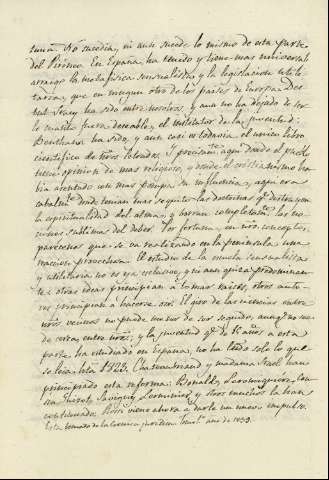 tuna. No sucedia, ni aun sucede lo mismo de esta parte
del Pirineo. En España, ha tenido y tiene mas universal
arraigo la metafisica sensualista y la legislacion utili-
taria, que en ningun otro de los paises de Europa. Des-
tut Tracy ha sido entre nosotros, y aun no ha dejado de ser
lo mucho fuera deseable, el institutor de la juventud:
Bentham ha sido, y aun casi es todavia el unico libro
cientifico de otros letrados. Y precisamte. aqui donde el pue
opinion de mas religioso, y donde el cristianismo ha-
bia asentado con mas pompa su influencia, aqui era
cabalmte. donde tenian mas seguito las doctrinas qe. destruyen
la espiritualidad del alma, y borran completamte. las no-
ciones sublimes del deber. Por fortuna, en ntro. concepto,
pareceme que se va realizando en la peninsula una
reaccion provechosa. El estudio de la escuela sensualista
y utilitaria no es ya exclusivo, ni aun quizá predominan-
te: otras ideas principian á echar raices, otros auto-
res principian á hacerse ver. El giro de las ciencias entre
ntros. vecinos no puede menos de ser seguido, aunqe. no sea
de cerca, entre ntros.; y la juventud qe. de 16 años á esta
parte ha estudiado en España, no ha leido solo lo que
se leia hta. 1823. Chateaubriand y madama Stael han
principiado esta reforma: Bonald, Laromiguiere, Cou-
sin, Guizot, Savigny, Lerminier y otros muchos la han
continuado. Rossi viene ahora á darle un nuevo impulso.
Esta tomado de la Cronica juridica año de 1839.